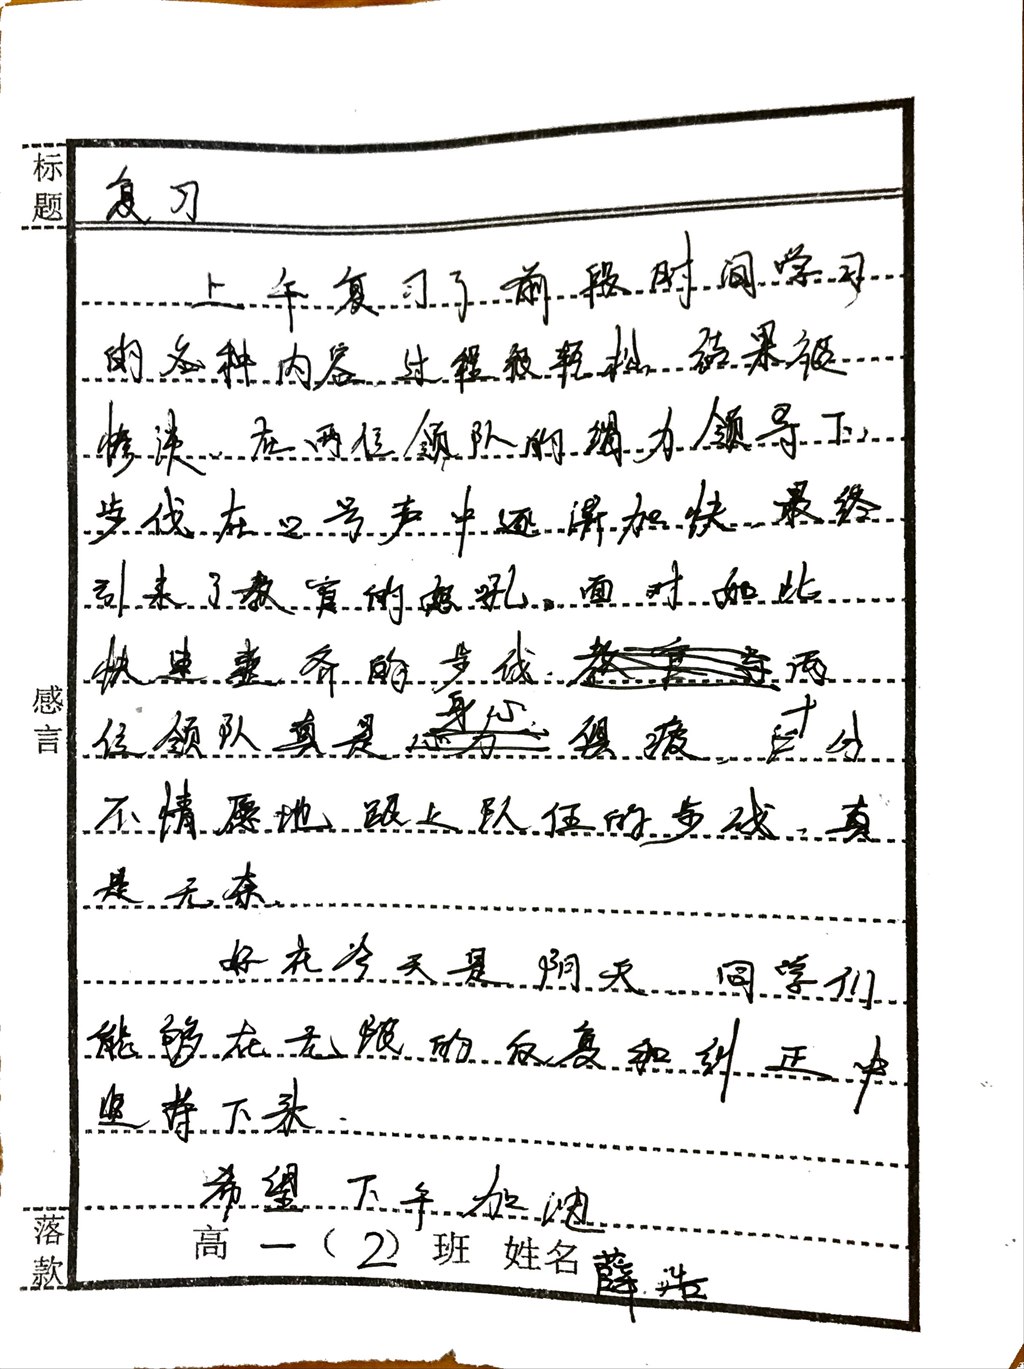 标题
复习
上午复习了前段时间学习
的各种内容,过程很轻松,结果很
惨淡、在两位领队的竭力领导下,
步伐在口号声中逐渐加快,最终
引来了教官的怒吼。面对如此
快速整齐的步伐,两
位领队真是身心俱疲,十分
不情愿地跟上队伍的步伐,真
是无奈。
感言
好在今天是阴天,同学们
能够在无限的反复和纠正中
坚持下来.
希望下午加油
落款
高一(2)班 姓名 薛浩